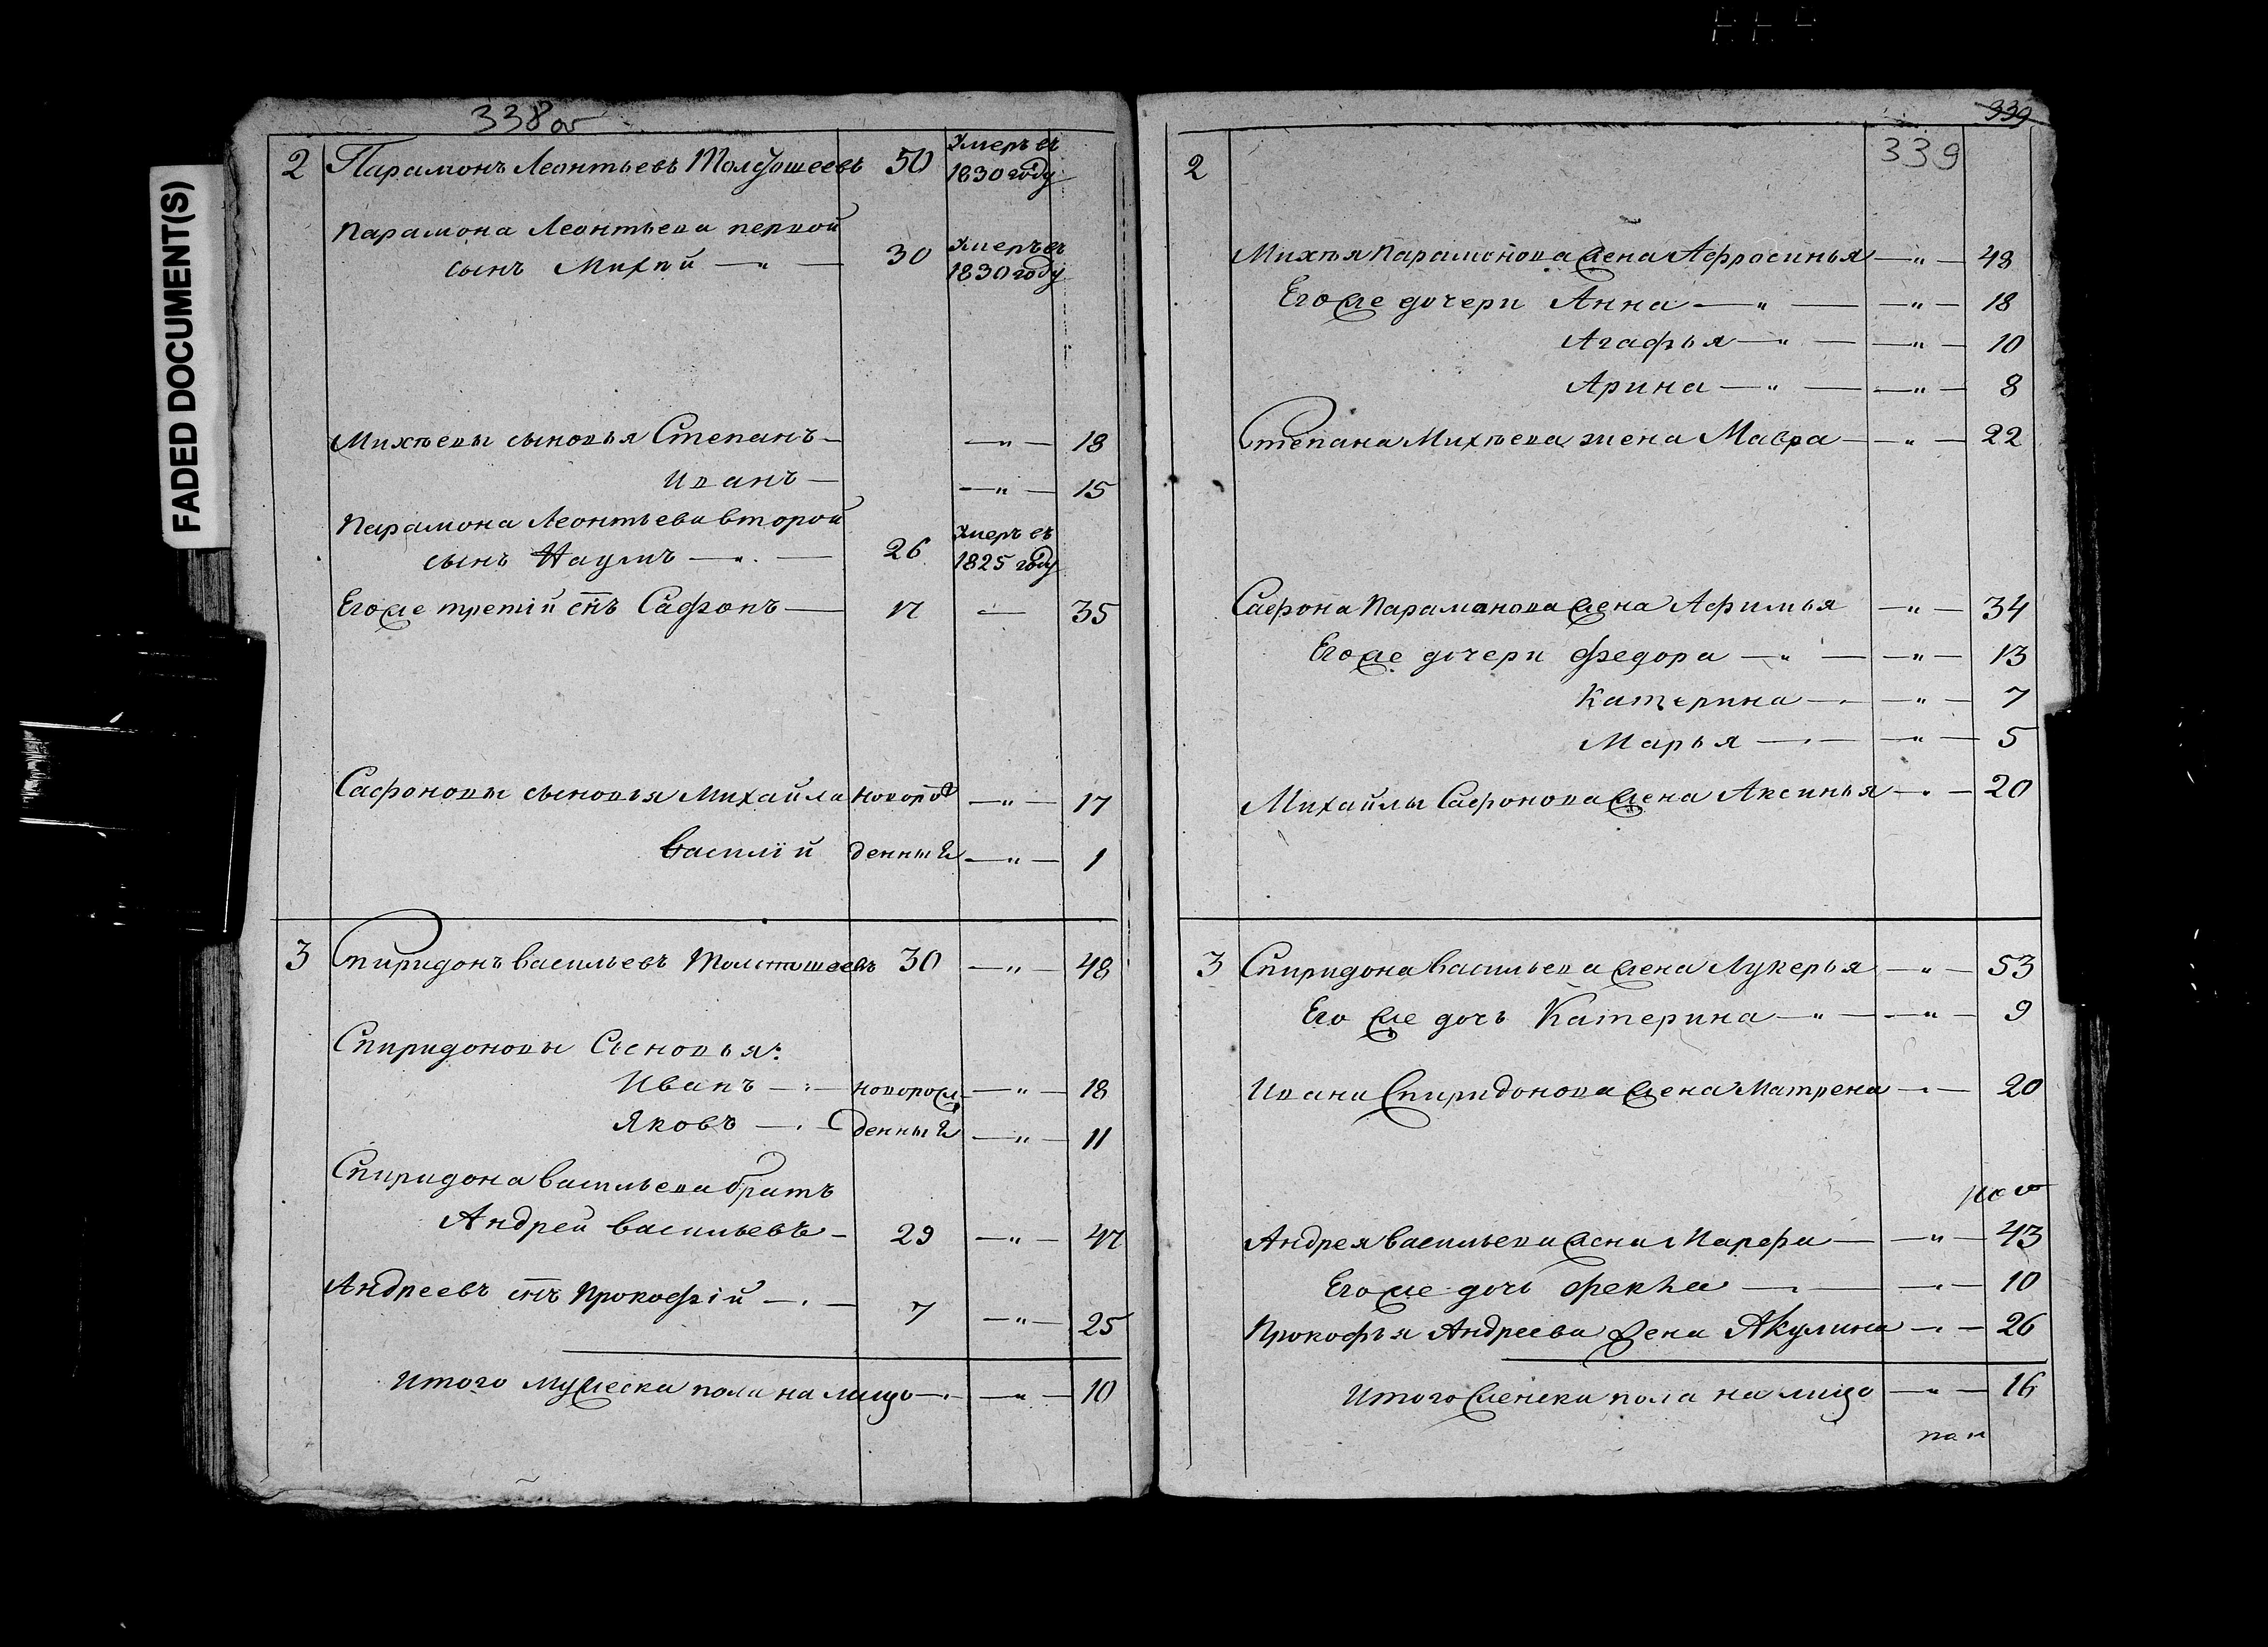 FADED DOCUMENT(S)
338 об
2 Парамонъ Леонтьевъ Толстошеевъ 50 Умеръ въ 1830 году
Парамона Леонтьева первой
сынъ Михѣй — " — 30 Умеръ въ 1830 году
Михѣевы сыновья Степанъ — — " — 18
Иванъ — — " — 15
Парамона Леонтьева второй
сынъ Наумъ — " — 26 Умеръ въ 1825 году
Его же третiй снъ Сафонъ — 17 — 35
Сафоновы сыновья Михайла новорож — " — 17
Василiй денные — " — 1
3 Спиридонъ Васильевъ Толстошеевъ 30 — " — 48
Спиридоновы Сыновья:
Иванъ — " — новорож — " — 18
Яковъ — " — денные — " — 11
Спиридона Васильева братъ
Андрей Васильевъ — 29 — " — 47
Андреевъ снъ Прокофiй — " — 7 — " — 25
Итого мужеска пола на лицо — " — — " — 10
339
339
2
Михѣя Парамонова жена Афросинья — " — 48
Его же дочери Анна — " — — " — 18
Агафья — " — — " — 10
Арина — " — — " — 8
Степана Михѣева жена Мавра — — " — 22
Сафона Парамонова жена Афимья — " — 34
Его же дочери Федора — " — — " — 13
Катерина — " — — " — 7
Марья — " — — " — 5
Михайлы Сафонова жена Аксинья — " — 20
3 Спиридона Васильева жена Лукерья — " — 53
Его же дочь Катерина — " — — " — 9
Ивана Спиридонова жена Матрена — " — 20
Андрея Васильева жена Марфа — — " — 43
Его же дочь Фекла — " — — " — 10
Прокофья Андреева жена Акулина — " — 26
Итого женска пола на лицо — " — 16